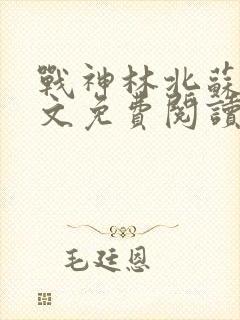 戰神林北蘇
文免費閱讀
毛廷恩